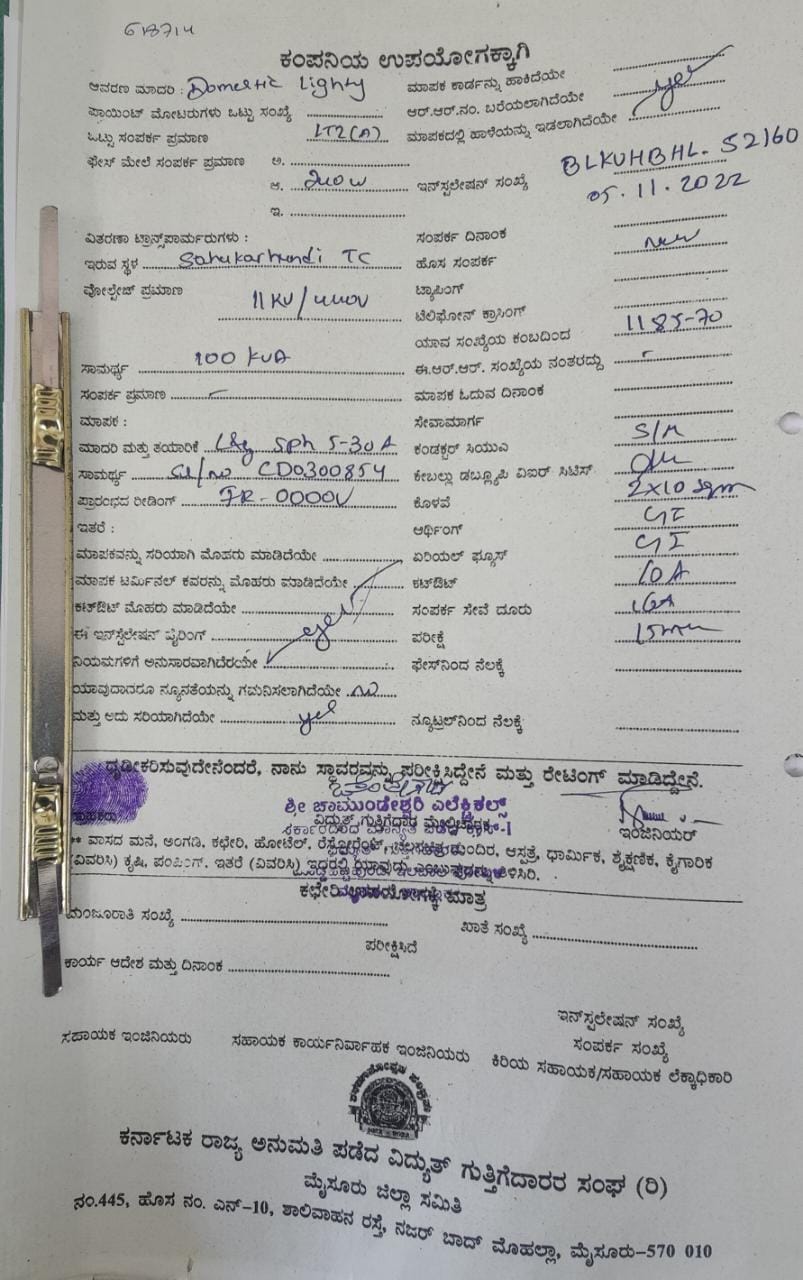 618714
ಕಂಪನಿಯ ಉಪಯೋಗಕ್ಕಾಗಿ
ಆವರಣ ಮಾದರಿ : Domestic Lighty
ಮಾಪಕ ಕಾರ್ಡನ್ನು ಹಾಕಿದೆಯೇ
ಪಾಯಿಂಟ್ ಮೋಟರುಗಳು ಒಟ್ಟು ಸಂಖ್ಯೆ
ಆರ್.ಆರ್.ನಂ. ಬರೆಯಲಾಗಿದೆಯೇ yes
ಒಟ್ಟು ಸಂಪರ್ಕ ಪ್ರಮಾಣ LT2(A)
ಮಾಪಕದಲ್ಲಿ ಹಾಳೆಯನ್ನು ಇಡಲಾಗಿದೆಯೇ
ಫೇಸ್ ಮೇಲೆ ಸಂಪರ್ಕ ಪ್ರಮಾಣ ಅ.
ಆ. 240W ಇನ್‌ಸ್ಟಲೇಷನ್ ಸಂಖ್ಯೆ BLKUHBHL. 52160
05.11.2022
ಇ.
ವಿತರಣಾ ಟ್ರಾನ್ಸ್‌ಪಾರ್ಮರುಗಳು :
ಸಂಪರ್ಕ ದಿನಾಂಕ
ಇರುವ ಸ್ಥಳ Sahukarhundi TC
ಹೊಸ ಸಂಪರ್ಕ new
ವೋಲ್ಟೇಜ್ ಪ್ರಮಾಣ 11KV/440V
ಟ್ಯಾಪಿಂಗ್
ಟೆಲಿಫೋನ್ ಕ್ರಾಸಿಂಗ್
ಯಾವ ಸಂಖ್ಯೆಯ ಕಂಬದಿಂದ 1185-70
ಸಾಮರ್ಥ್ಯ 100 KVA
ಈ.ಆರ್.ಆರ್. ಸಂಖ್ಯೆಯ ನಂತರದ್ದು -
ಸಂಪರ್ಕ ಪ್ರಮಾಣ -
ಮಾಪಕ ಓದುವ ದಿನಾಂಕ
ಮಾಪಕ :
ಸೇವಾಮಾರ್ಗ S/M
ಮಾದರಿ ಮತ್ತು ತಯಾರಿಕೆ L&g Sph 5-30A
ಕಂಡಕ್ಟರ್ ಸಿಯುಎ
ಸಾಮರ್ಥ್ಯ Sl/no CD0300854
ಕೇಬಲ್ಲು ಡಬ್ಲ್ಯೂಪಿ ವಿಐರ್ ಸಿಟಿಸ್ 2X10 Sqm
ಪ್ರಾರಂಭದ ರೀಡಿಂಗ್ IR-0000V
ಕೊಳವೆ GI
ಇತರೆ :
ಆರ್ಥಿಂಗ್ GI
ಮಾಪಕವನ್ನು ಸರಿಯಾಗಿ ಮೊಹರು ಮಾಡಿದೆಯೇ
ಏರಿಯಲ್ ಫ್ಯೂಸ್ 10A
ಮಾಪಕ ಟರ್ಮಿನಲ್ ಕವರನ್ನು ಮೊಹರು ಮಾಡಿದೆಯೇ
ಕಟ್‌ಔಟ್ 16A
ಕಟ್‌ಔಟ್ ಮೊಹರು ಮಾಡಿದೆಯೇ yes
ಸಂಪರ್ಕ ಸೇವೆ ದೂರು 15mtr
ಈ ಇನ್‌ಸ್ಟಲೇಷನ್ ವೈರಿಂಗ್
ಪರೀಕ್ಷೆ
ನಿಯಮಗಳಿಗೆ ಅನುಸಾರವಾಗಿದೆರಯೇ
ಫೇಸ್‌ನಿಂದ ನೆಲಕ್ಕೆ
ಯಾವುದಾದರೂ ನ್ಯೂನತೆಯನ್ನು ಗಮನಿಸಲಾಗಿದೆಯೇ no
ಮತ್ತು ಅದು ಸರಿಯಾಗಿದೆಯೇ yes
ನ್ಯೂಟ್ರಲ್‌ನಿಂದ ನೆಲಕ್ಕೆ
ಧೃಡೀಕರಿಸುವುದೇನೆಂದರೆ, ನಾನು ಸ್ಥಾವರವನ್ನು ಪರೀಕ್ಷಿಸಿದ್ದೇನೆ ಮತ್ತು ರೇಟಿಂಗ್ ಮಾಡಿದ್ದೇನೆ.
ಶ್ರೀ ಚಾಮುಂಡೇಶ್ವರಿ ಎಲೆಕ್ಟ್ರಿಕಲ್ಸ್
ಗ್ರಾಹಕರು ವಿದ್ಯುತ್ ಗುತ್ತಿಗೆದಾರ ಮೇಲ್ವಿಚಾರಕ ಇಂಜಿನಿಯರ್
** ವಾಸದ ಮನೆ, ಅಂಗಡಿ, ಕಛೇರಿ, ಹೋಟೆಲ್, ರೆಸ್ಟೋರೆಂಟ್, ಚಲನಚಿತ್ರ ಮಂದಿರ, ಆಸ್ಪತ್ರೆ, ಧಾರ್ಮಿಕ, ಶೈಕ್ಷಣಿಕ, ಕೈಗಾರಿಕ
(ವಿವರಿಸಿ) ಕೃಷಿ, ಪಂಪಿಂಗ್. ಇತರೆ (ವಿವರಿಸಿ) ಇದ್ದರಲ್ಲಿ ಯಾವುದು ಎಂಬುವುದನ್ನು ತಿಳಿಸಿರಿ.
ಕಛೇರಿ ಉಪಯೋಗಕ್ಕೆ ಮಾತ್ರ
ಮಂಜೂರಾತಿ ಸಂಖ್ಯೆ
ಖಾತೆ ಸಂಖ್ಯೆ
ಪರೀಕ್ಷಿಸಿದೆ
ಕಾರ್ಯ ಆದೇಶ ಮತ್ತು ದಿನಾಂಕ
ಇನ್‌ಸ್ಟಲೇಷನ್ ಸಂಖ್ಯೆ
ಸಂಪರ್ಕ ಸಂಖ್ಯೆ
ಸಹಾಯಕ ಇಂಜಿನಿಯರು ಸಹಾಯಕ ಕಾರ್ಯನಿರ್ವಾಹಕ ಇಂಜಿನಿಯರು ಕಿರಿಯ ಸಹಾಯಕ/ಸಹಾಯಕ ಲೆಕ್ಕಾಧಿಕಾರಿ
ಕರ್ನಾಟಕ ರಾಜ್ಯ ಅನುಮತಿ ಪಡೆದ ವಿದ್ಯುತ್ ಗುತ್ತಿಗೆದಾರರ ಸಂಘ (ರಿ)
ಮೈಸೂರು ಜಿಲ್ಲಾ ಸಮಿತಿ
ನಂ.445, ಹೊಸ ನಂ. ಎನ್-10, ಶಾಲಿವಾಹನ ರಸ್ತೆ, ನಜರ್ ಬಾದ್ ಮೊಹಲ್ಲಾ, ಮೈಸೂರು-570 010